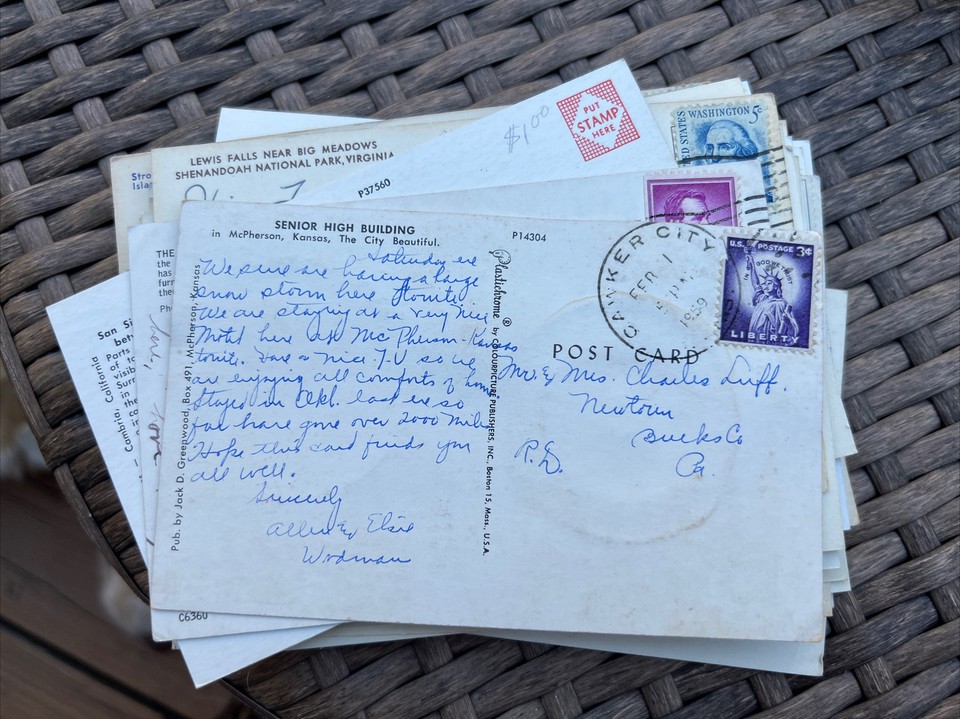 PUT
STAMP
HERE
$1.00
UNITED STATES WASHINGTON 5¢
LEWIS FALLS NEAR BIG MEADOWS
SHENANDOAH NATIONAL PARK, VIRGINIA
P37560
Stro
Islan
SENIOR HIGH BUILDING
in McPherson, Kansas, The City Beautiful.
P14304
Saturday eve
We sure are having a large
snow storm here tonite
We are staying at a very nice
Motel here at McPherson - Kansas
tonite. Have a nice T.V so we
are enjoying all comforts of home
Stayed in Okl. last eve so
far have gone over 2000 miles
Hope this card finds you
all well.
Sincerely
Allen & Elsie
Wodman
Plastichrome ® by COLOURPICTURE PUBLISHERS, INC., Boston 15, Mass., U.S.A.
Pub. by Jack D. Greenwood, Box 491, McPherson, Kansas
CAWKER CITY
FEB 1
1959
U.S. POSTAGE 3¢
IN GOD WE TRUST
LIBERTY
POST CARD
Mr. & Mrs. Charles Luff.
Newtown
Bucks Co
R.D.
Pa.
THE
has
furn
the
Ph
San Si
betw
Parts of
visib
in Surr
the
Cambria, California
C6360